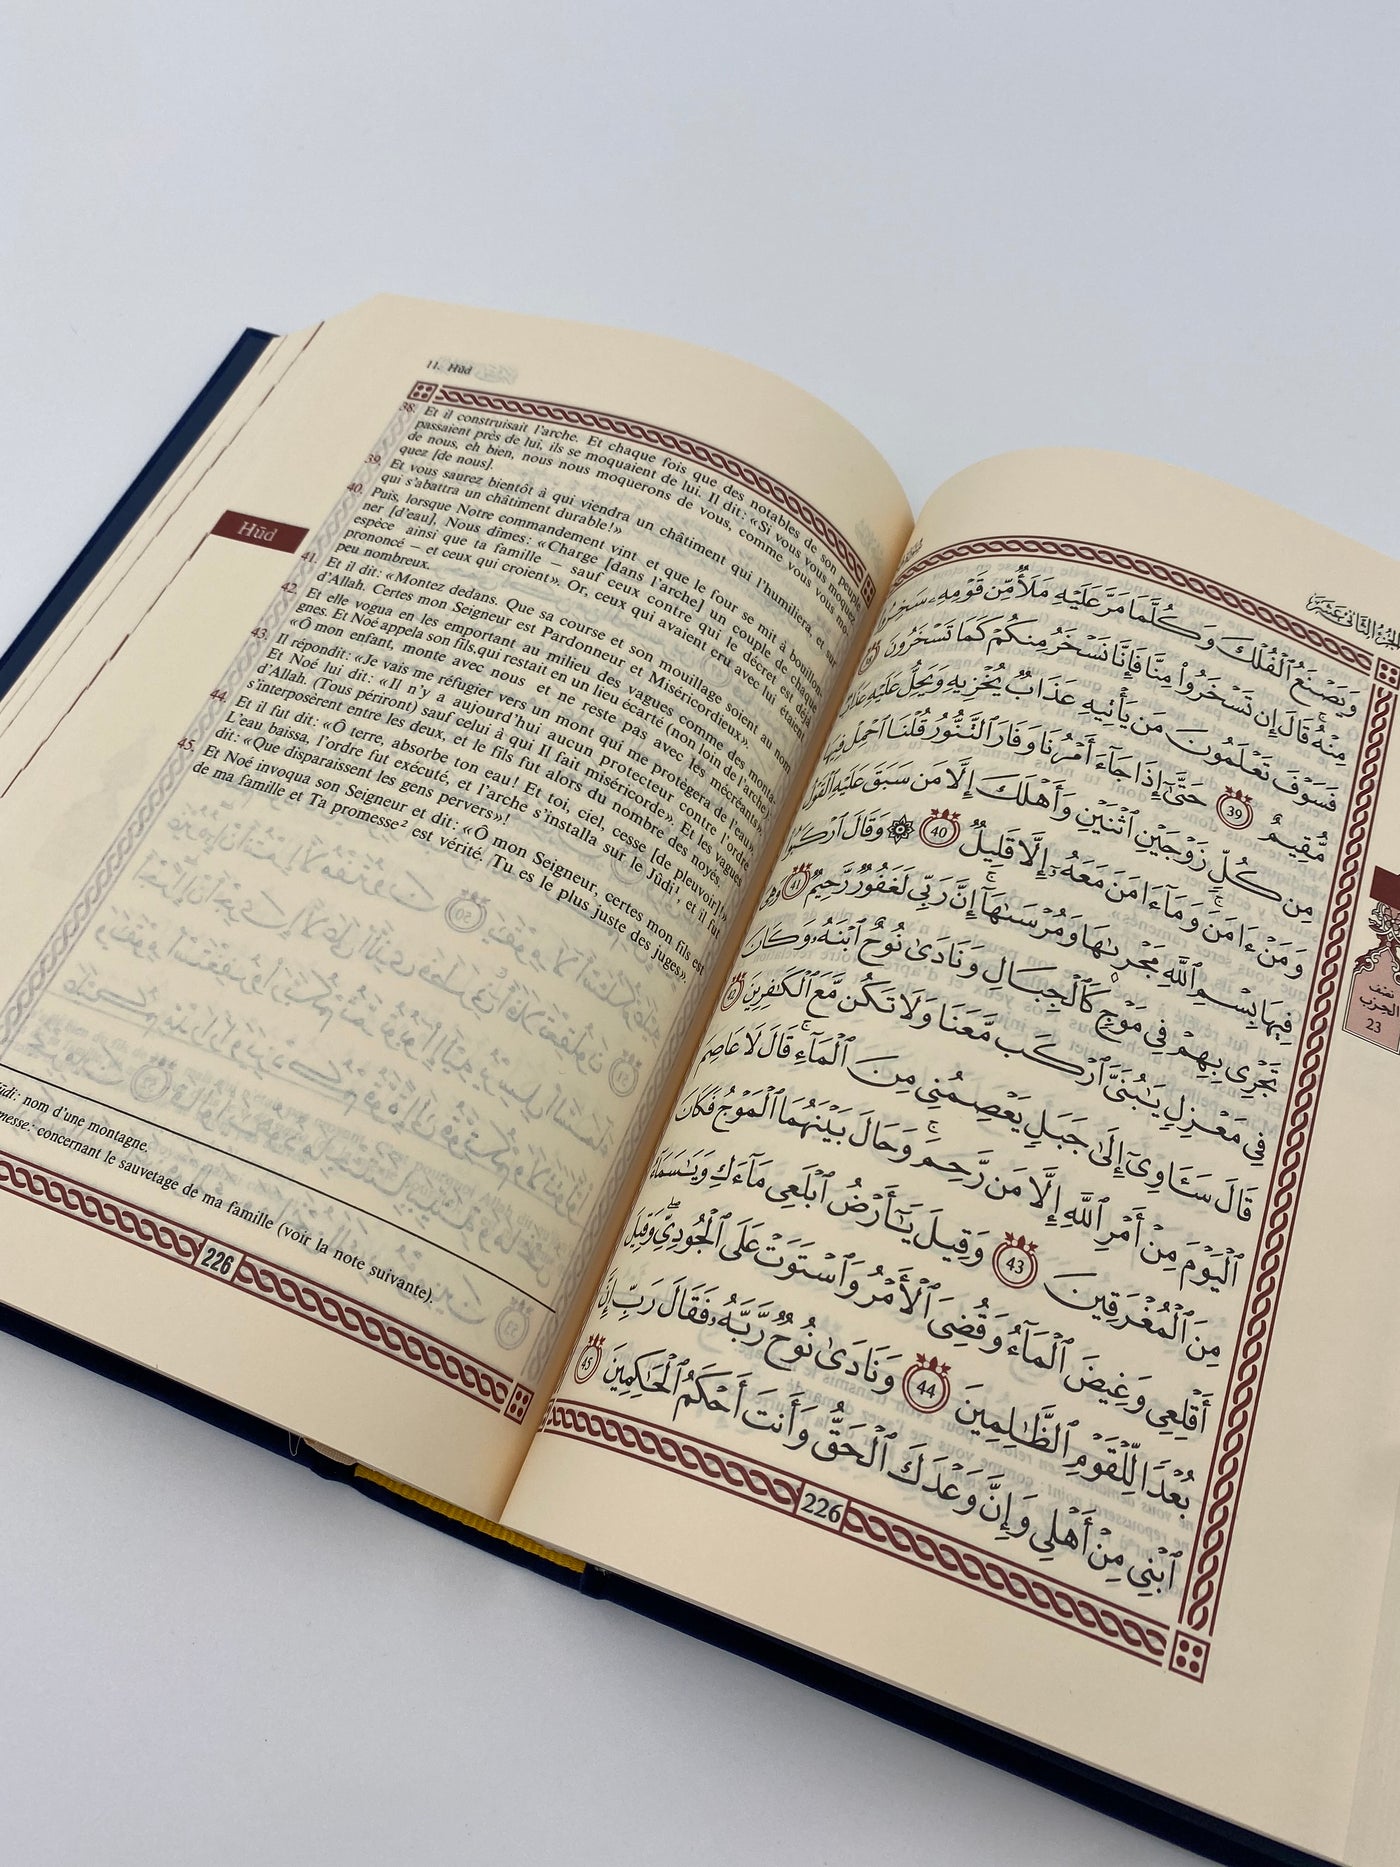 11. Hūd
38. Et il construisait l'arche. Et chaque fois que des notables de son peuple
passaient près de lui, ils se moquaient de lui. Il dit: «Si vous vous moquez
de nous, eh bien, nous nous moquerons de vous, comme vous vous mo-
quez [de nous].
39. Et vous saurez bientôt à qui viendra un châtiment qui l'humiliera, et sur
qui s'abattra un châtiment durable!»
40. Puis, lorsque Notre commandement vint et que le four se mit à bouillon-
ner [d'eau], Nous dîmes: «Charge [dans l'arche] un couple de chaque
espèce ainsi que ta famille – sauf ceux contre qui le décret est déjà
prononcé – et ceux qui croient». Or, ceux qui avaient cru avec lui étaient
peu nombreux.
41. Et il dit: «Montez dedans. Que sa course et son mouillage soient au nom
d'Allah. Certes mon Seigneur est Pardonneur et Miséricordieux».
42. Et elle vogua en les emportant au milieu des vagues comme des monta-
gnes. Et Noé appela son fils, qui restait en un lieu écarté (non loin de l'arche):
«Ô mon enfant, monte avec nous et ne reste pas avec les mécréants».
43. Il répondit: «Je vais me réfugier vers un mont qui me protégera de l'eau».
Et Noé lui dit: «Il n'y a aujourd'hui aucun protecteur contre l'ordre
d'Allah. (Tous périront) sauf celui à qui Il fait miséricorde». Et les vagues
s'interposèrent entre les deux, et le fils fut alors du nombre des noyés.
44. Et il fut dit: «Ô terre, absorbe ton eau! Et toi, ciel, cesse [de pleuvoir]!»
L'eau baissa, l'ordre fut exécuté, et l'arche s'installa sur le Jûdi¹, et il fut
dit: «Que disparaissent les gens pervers»!
45. Et Noé invoqua son Seigneur et dit: «Ô mon Seigneur, certes mon fils est
de ma famille et Ta promesse² est vérité. Tu es le plus juste des juges».
Hūd
nom d'une montagne.
concernant le sauvetage de ma famille (voir la note suivante).
226
وَيَصْنَعُ ٱلْفُلْكَ وَكُلَّمَا مَرَّ عَلَيْهِ مَلَأٌ مِّن قَوْمِهِۦ سَخِرُوا۟
مِنْهُ ۚ قَالَ إِن تَسْخَرُوا۟ مِنَّا فَإِنَّا نَسْخَرُ مِنكُمْ كَمَا تَسْخَرُونَ
فَسَوْفَ تَعْلَمُونَ مَن يَأْتِيهِ عَذَابٌ يُخْزِيهِ وَيَحِلُّ عَلَيْهِ عَذَابٌ
مُّقِيمٌ 39 حَتَّىٰٓ إِذَا جَآءَ أَمْرُنَا وَفَارَ ٱلتَّنُّورُ قُلْنَا ٱحْمِلْ فِيهَا
مِن كُلٍّ زَوْجَيْنِ ٱثْنَيْنِ وَأَهْلَكَ إِلَّا مَن سَبَقَ عَلَيْهِ ٱلْقَوْلُ
وَمَنْ ءَامَنَ ۚ وَمَآ ءَامَنَ مَعَهُۥٓ إِلَّا قَلِيلٌ 40 ۞ وَقَالَ ٱرْكَبُوا۟
فِيهَا بِسْمِ ٱللَّهِ مَجْر۪ىٰهَا وَمُرْسَىٰهَآ ۚ إِنَّ رَبِّى لَغَفُورٌ رَّحِيمٌ 41 وَهِىَ
تَجْرِى بِهِمْ فِى مَوْجٍ كَٱلْجِبَالِ وَنَادَىٰ نُوحٌ ٱبْنَهُۥ وَكَانَ
فِى مَعْزِلٍ يَـٰبُنَىَّ ٱرْكَب مَّعَنَا وَلَا تَكُن مَّعَ ٱلْكَـٰفِرِينَ 42
قَالَ سَـَٔاوِىٓ إِلَىٰ جَبَلٍ يَعْصِمُنِى مِنَ ٱلْمَآءِ ۚ قَالَ لَا عَاصِمَ
ٱلْيَوْمَ مِنْ أَمْرِ ٱللَّهِ إِلَّا مَن رَّحِمَ ۚ وَحَالَ بَيْنَهُمَا ٱلْمَوْجُ فَكَانَ
مِنَ ٱلْمُغْرَقِينَ 43 وَقِيلَ يَـٰٓأَرْضُ ٱبْلَعِى مَآءَكِ وَيَـٰسَمَآءُ
أَقْلِعِى وَغِيضَ ٱلْمَآءُ وَقُضِىَ ٱلْأَمْرُ وَٱسْتَوَتْ عَلَى ٱلْجُودِىِّ ۖ وَقِيلَ
بُعْدًا لِّلْقَوْمِ ٱلظَّـٰلِمِينَ 44 وَنَادَىٰ نُوحٌ رَّبَّهُۥ فَقَالَ رَبِّ إِنَّ
ٱبْنِى مِنْ أَهْلِى وَإِنَّ وَعْدَكَ ٱلْحَقُّ وَأَنتَ أَحْكَمُ ٱلْحَـٰكِمِينَ 45
226
نصف
الحزب
23